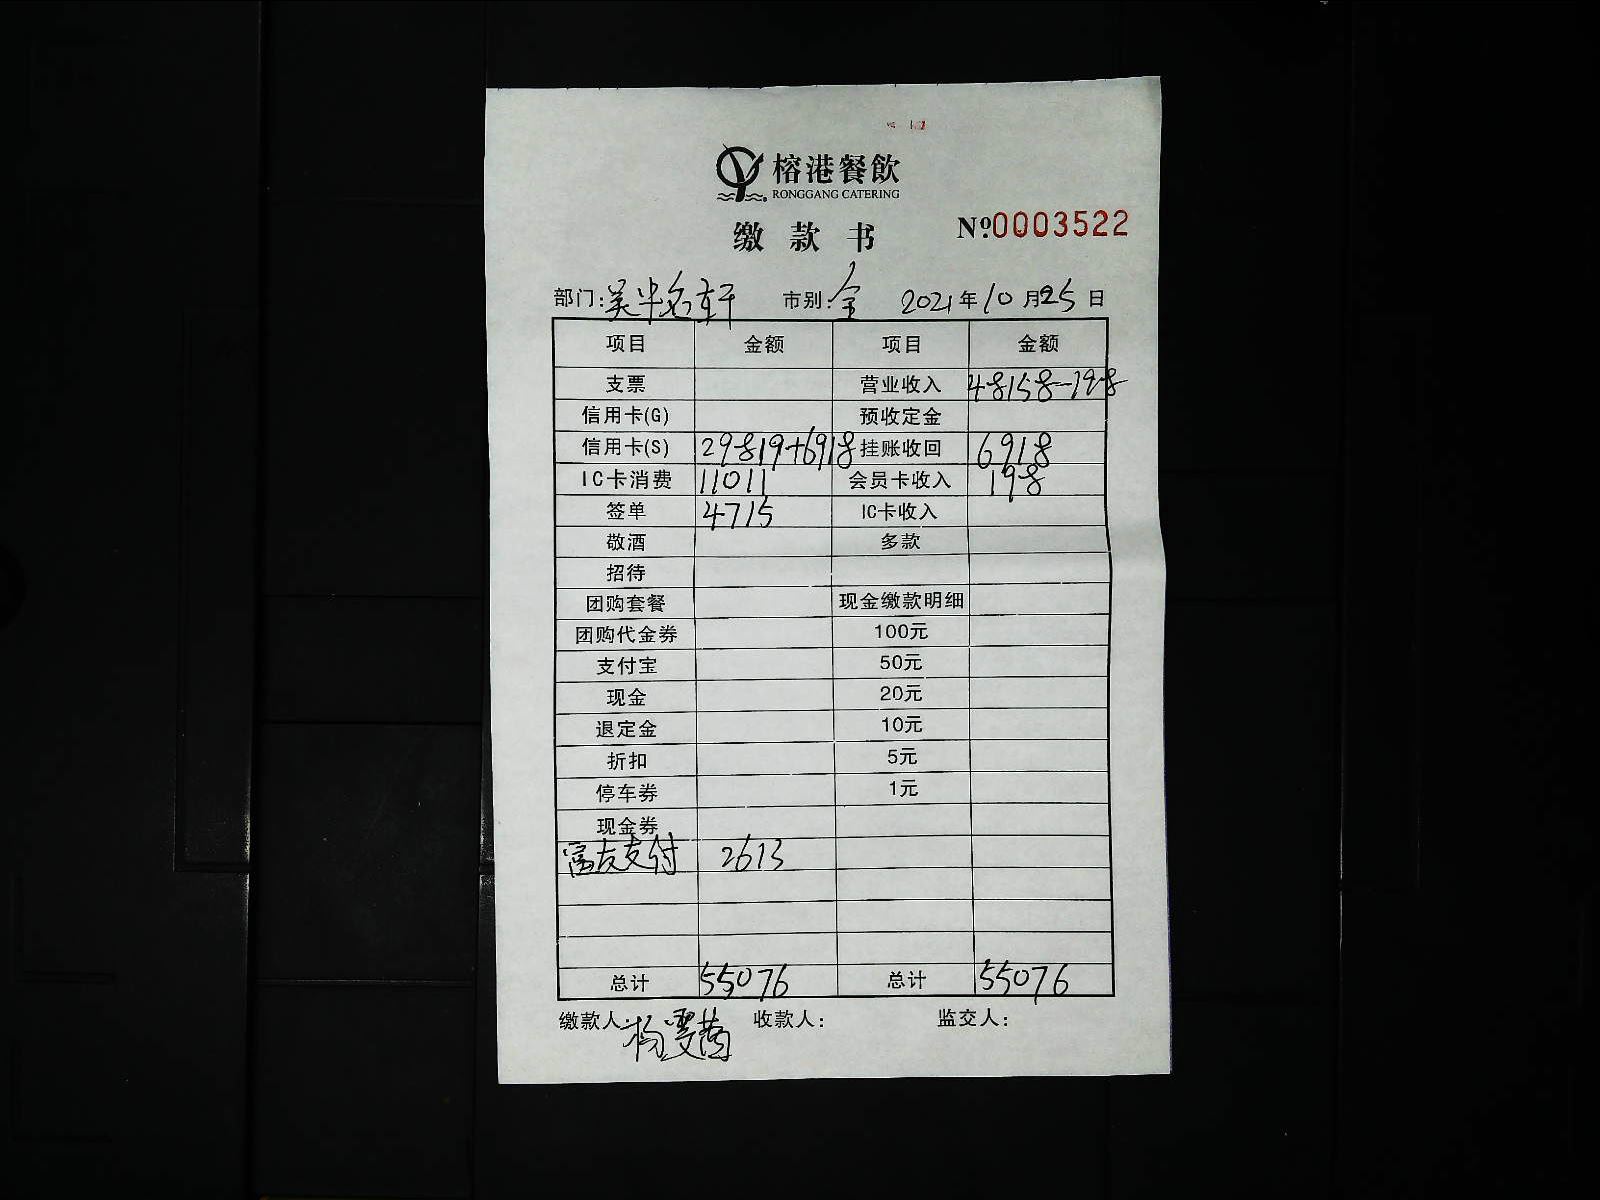 榕港餐飲
RONGGANG CATERING
缴款书 №0003522
部门: 市别:全 2021年10月25日
项目 金额 项目 金额
支票 营业收入 48158-198
信用卡(G) 预收定金
信用卡(S) 29819+6918 挂账收回 6918
IC卡消费 11011 会员卡收入 198
签单 4715 IC卡收入
敬酒 多款
招待
团购套餐 现金缴款明细
团购代金券 100元
支付宝 50元
现金 20元
退定金 10元
折扣 5元
停车券 1元
现金券
富友支付 2613
总计 55076 总计 55076
缴款人: 收款人: 监交人: